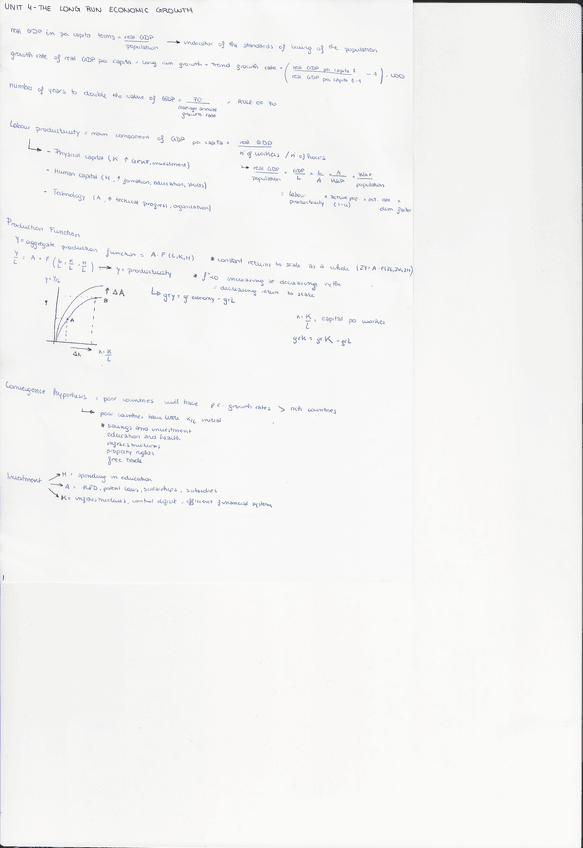 UNIT 4-THE LONG RUN ECONOMIC GROWTH
real GDP in per capita terms = real GDP / population → indicator of the standards of living of the population
growth rate of real GDP per capita = long run growth = trend growth rate = ( real GDP per capita t / real GDP per capita t-1 - 1 ) · 100
number of years to double the value of GDP = 70 / average annual growth rate = RULE OF 70
Labour productivity = main component of GDP per capita = real GDP / nº of workers / nº of hours
- Physical capital (K ↑ investment)
real GDP / population = GDP / L · L / A · A / WAP · WAP / population
- Human capital (H, ↑ formation, education, skills)
= labour productivity × (1-u) ×
- Technology (A, ↑ technical progress, organization)
Production Function
Y = aggregate production function = A · F (L, K, H) * constant returns to scale as a whole (2Y = A · F(2L, 2K, 2H)
Y/L = A · F ( L/L, K/L, H/L ) → y = productivity * f''<0 increasing at decreasing
= decreasing return to scale
y = Y/L
↑ ΔA
B
A
Δk
k = K/L
k = K/L = capital per worker
grk = grK - grL
Convergence Hypothesis = poor countries will have p.c. growth rates > rich countries
poor countries have little K/L initial
* savings and investment
education and health
infrastructures
property rights
free trade
Investment
H = spending in education
A = R&D, patent laws, scholarships, subsidies
K = infrastructures, control deficit, efficient financial system